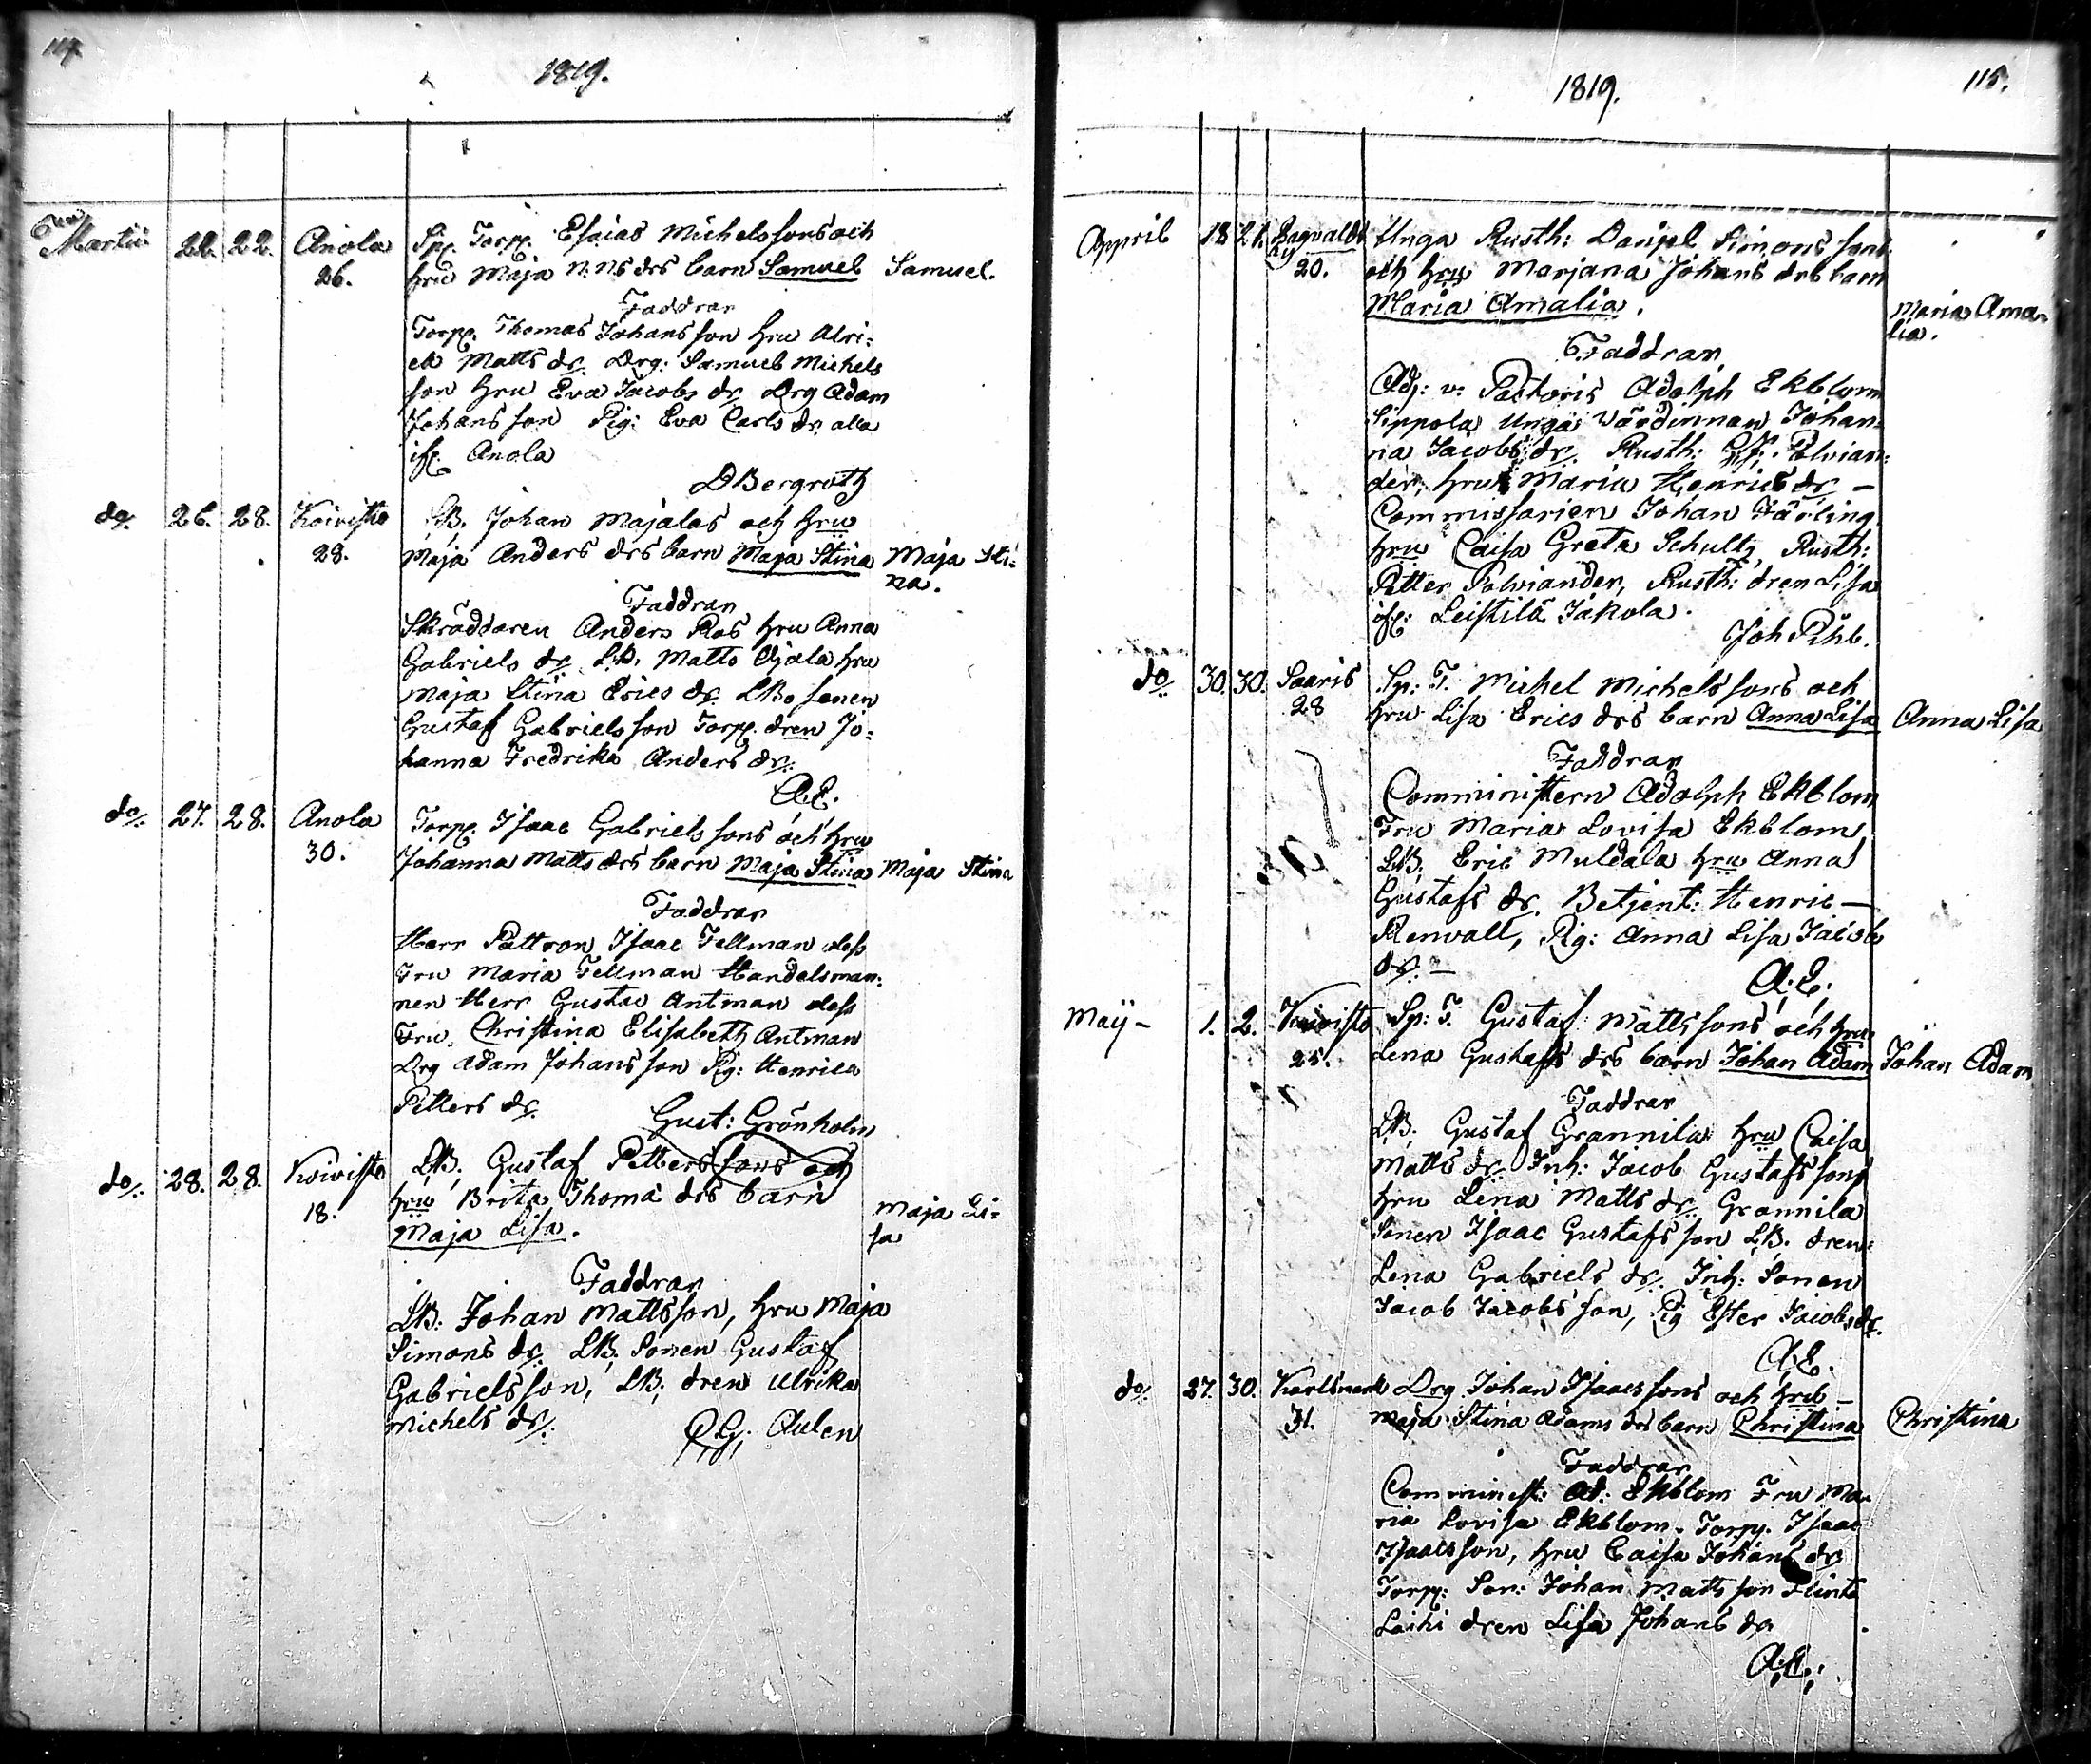 114.
1819.
Martii 22. 22. Anola Sp. Torp. Esaias Michelssons och
26. hru Maja N.Ns drs barn Samuel Samuel.
Faddrar
Torp. Thomas Johansson hru Ulri=
ca Matts dr. Drg: Samuel Michels
son hru Eva Jacobs dr. Drg Adam
Johansson Pig: Eva Carls dr. alla
ifr. Anola
DBergroth
do. 26. 28. Koivisto LB. Johan Majalas och hru
28. Maja Anders drs barn Maja Stina Maja Sti=
na.
Faddrar
Skräddaren Anders Ros hru Anna
Gabriels dr. LB. Matts Ojala hru
Maja Stina Erics dr. LBo sonen
Gustaf Gabrielsson Torp. dren Jo=
hanna Fredrika Anders dr.
A.E.
do. 27. 28. Anola Torp. Isaac Gabrielssons och hru
30. Johanna Matts drs barn Maja Stina Maja Stina
Faddrar
Herr Pattron Isaac Fellman dess
Fru Maria Fellman Handelsman=
nen Herr Gustav Antman dess
Fru Christina Elisabeth Antman
Drg Adam Johansson Pig: Henrica
Petters dr.
Gust: Grönholm
do. 28. 28. Koivisto LB. Gustaf Petterssons och
18. hru Brita Thomæ drs barn
Maja Lisa. Maja Li=
sa
Faddrar
LB. Johan Mattsson, hru Maja
Simons dr. LB. Sonen Gustaf
Gabrielsson, LB. dren Ulrika
Michels dr.
Aulen
1819.
115.
Appril 18. 21. Ragvalds Unga Rusth: Daniel Simons sons
by 20. och hru Marjana Johans drs barn
Maria Amalia. Maria Ama=
lia.
Faddrar
Adj: v: Pastoris Adolph Ekblom
Sippola Unga Värdinnan Johan=
na Jacobs dr. Rusth: Polvian=
der, hru Maria Henrics dr —
Commissarien Johan Färling
hru Caisa Greta Schultz, Rusth:
Petter Polviander, Rusth: dren Lisa
ifr: Leistilä Jakola.
Joh Pihl.
do 30. 30. Saaris Sp: T. Michel Michelssons och
28 hru Lisa Erics drs barn Anna Lisa Anna Lisa
Faddrar
Comministern Adolph Ekblom
Fru Maria Lovisa Ekblom,
LB. Eric Muldala hru Anna
Gustafs dr. Betjent: Henric —
Renvall, Pig: Anna Lisa Jacobs
dr. —
A.E.
Maÿ — 1. 2. Koivisto Sp: T. Gustaf Mattssons och hru
25. Lena Gustafs drs barn Johan Adam Johan Adam
Faddrar
LB. Gustaf Grannila hru Caisa
Matts dr. Inh: Jacob Gustafsson
hru Lena Matts dr. Grannila
Sonen Isaac Gustafsson LB. dren
Lena Gabriels dr. Inh: Sonen
Jacob Jacobsson, Pig Ester Jacobs dr.
A.E.
do. 27. 30. Karlsmark Drg Johan Isaacssons och hru —
31. Maja Stina Adams drs barn Christina Christina
Faddrar
Comminist: Ad: Ekblom Fru Ma=
ria Lovisa Ekblom. Torp. Isaac
Isaacsson, hru Caisa Johans dr
Torp: Son: Johan Mattsson
dren Lisa Johans dr
A.E.